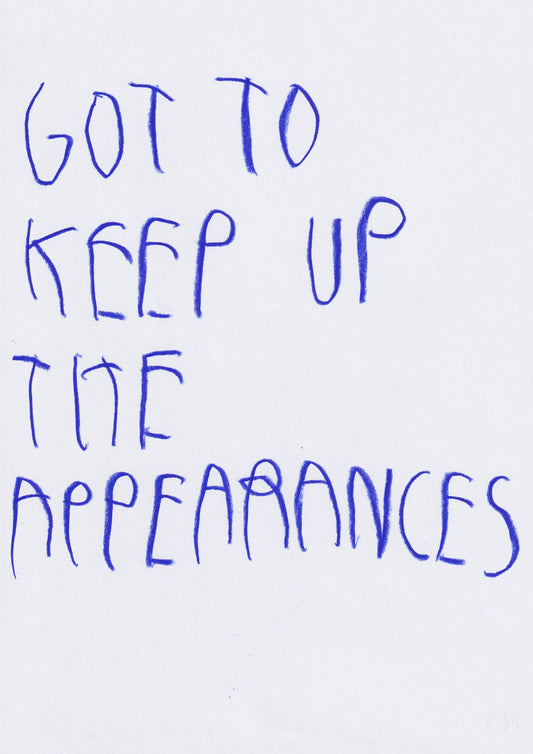 GOT TO
KEEP UP
THE
APPEARANCES